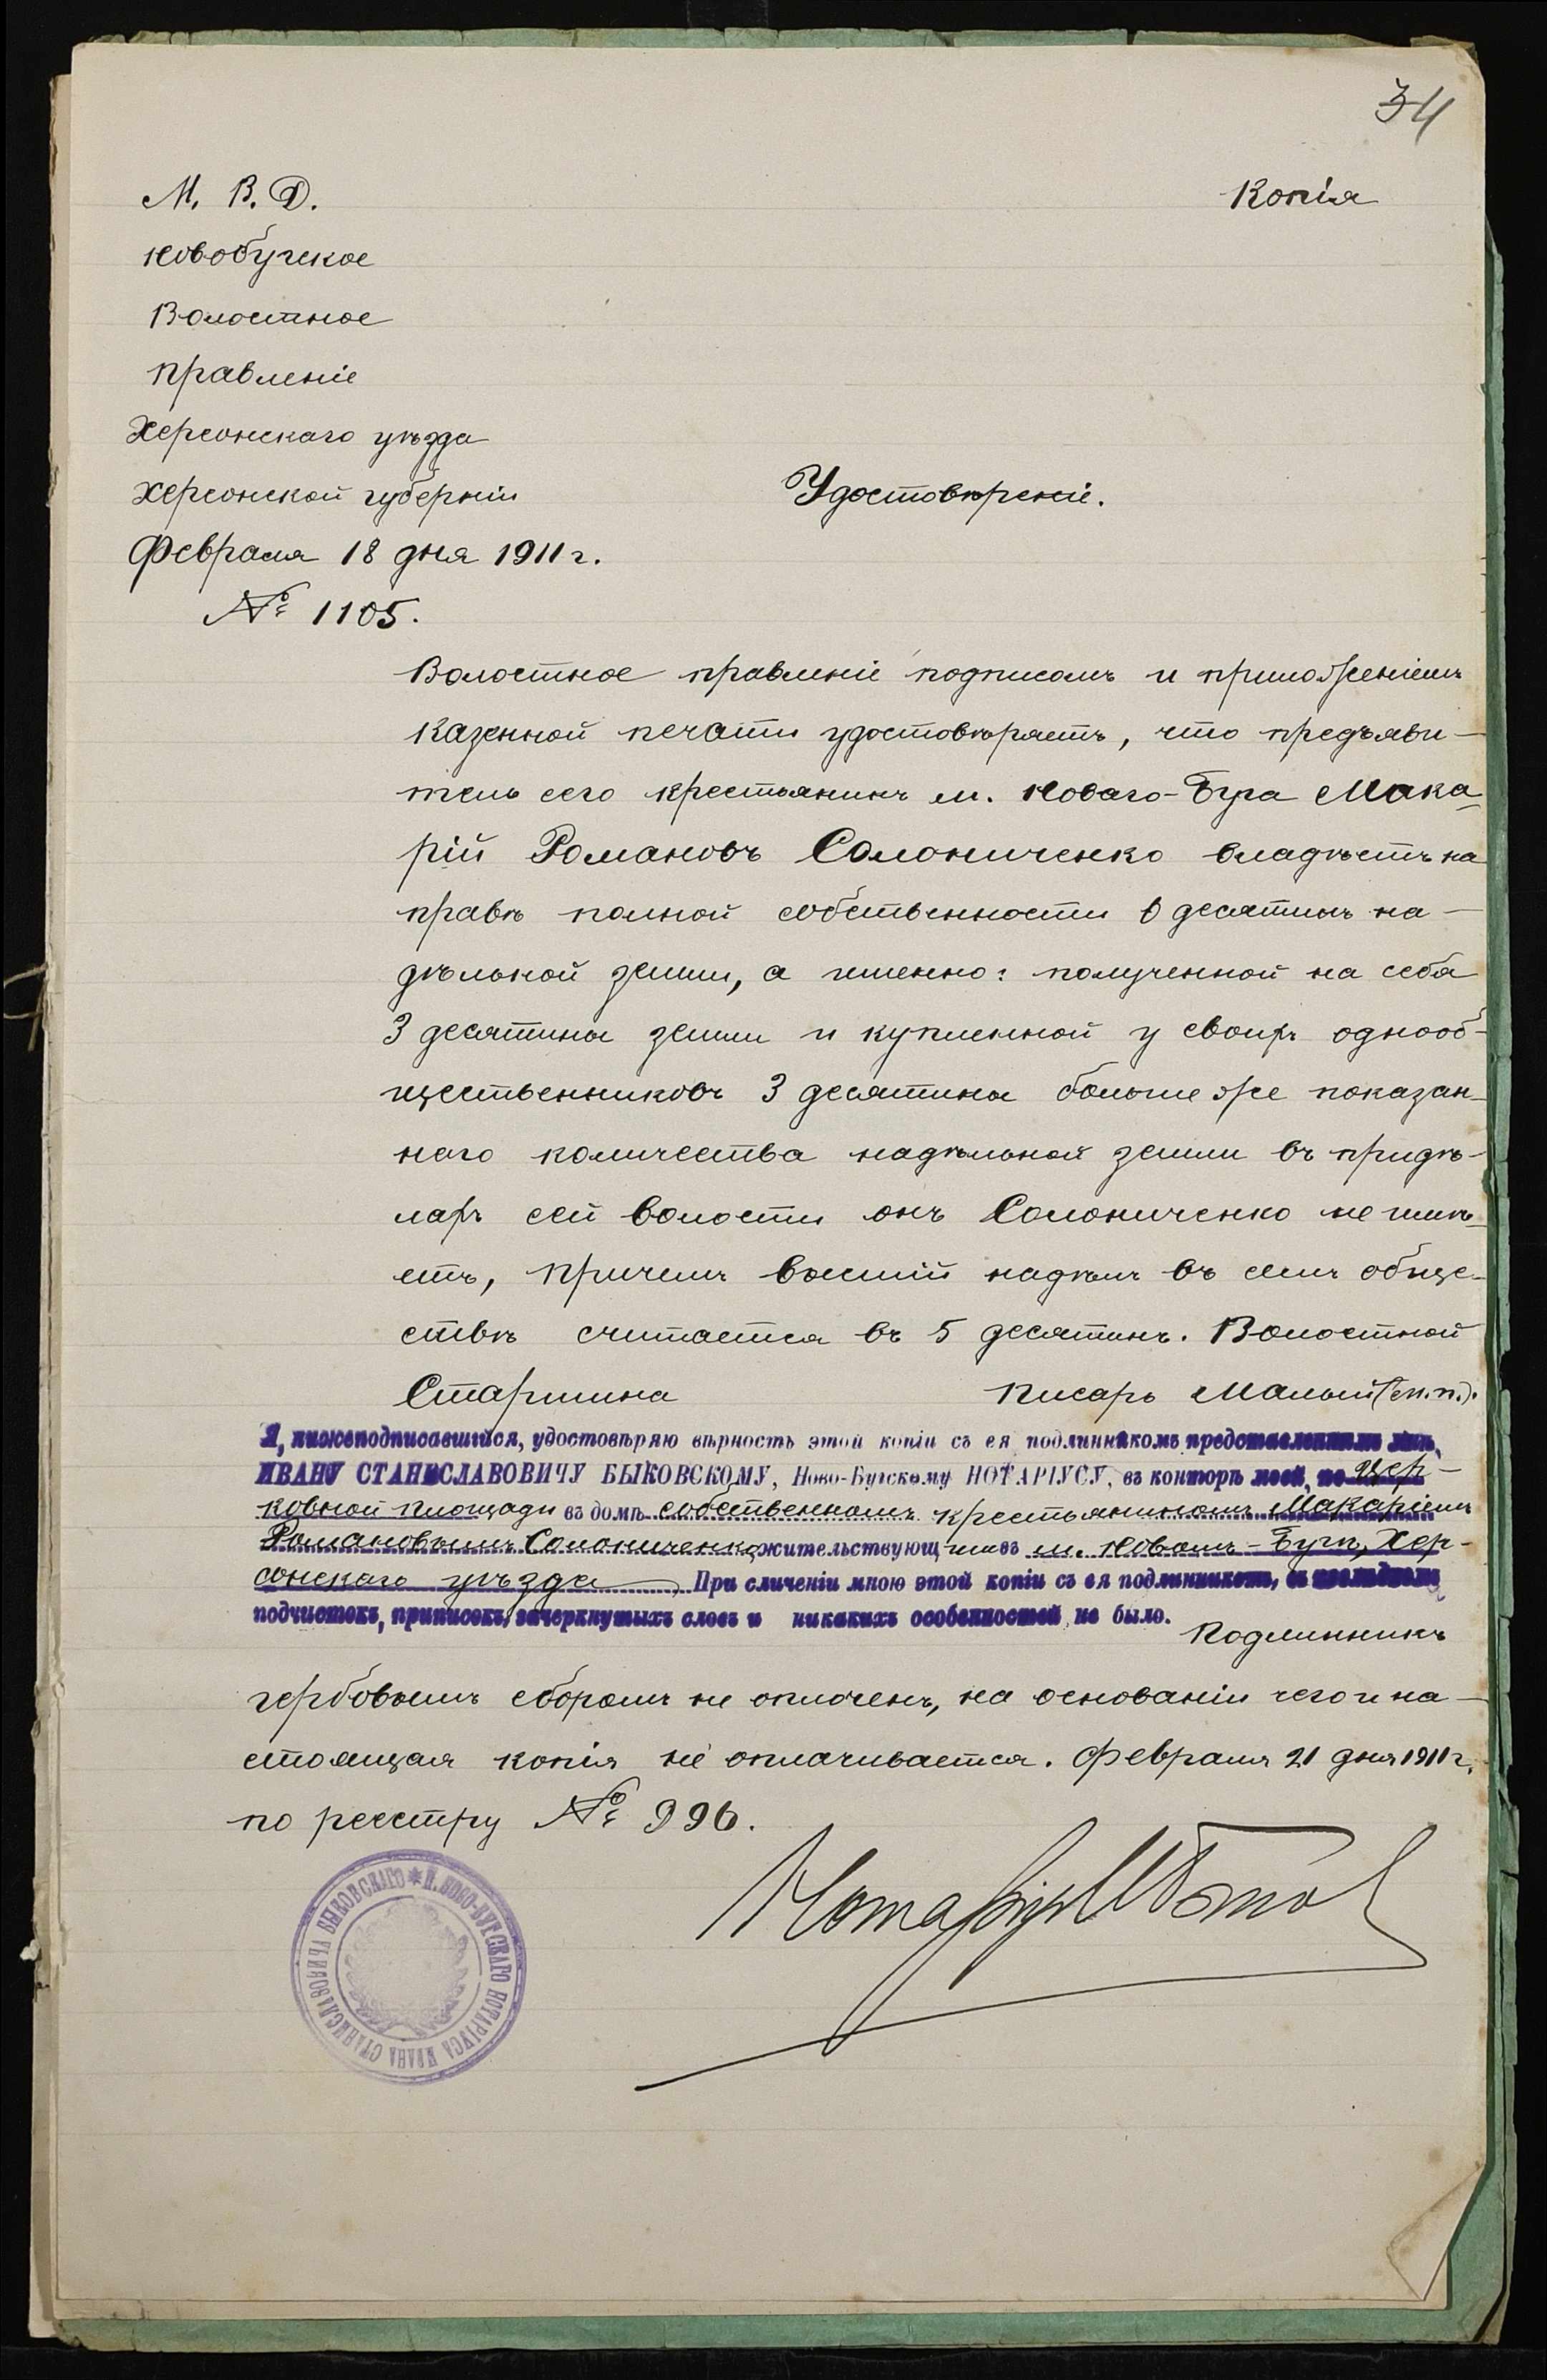 34
М. В. Д.
Копія
Новобугское
Волостное
Правленіе
Херсонскаго уѣзда
Херсонской губерніи
Удостовѣреніе.
Февраля 18 дня 1911 г.
№ 1105.
Волостное правленіе подписомъ и приложеніемъ
казенной печати удостовѣряетъ, что предъяви-
тель сего крестьянинъ м. Новаго-Буга Мака-
рій Романовъ Солониченко владѣетъ на
правѣ полной собственности 6 десятинъ на-
дѣльной земли, а именно: полученной на себя
3 десятины земли и купленной у своихъ однооб-
щественниковъ 3 десятины больше же показан-
наго количества надѣльной земли въ придѣ-
лахъ сей волости онъ Солониченко не имѣ-
етъ, причемъ высшій надѣлъ въ семъ обще-
ствѣ считается въ 5 десятинъ. Волостной
Старшина Писарь Малый (м.п.).
Я, нижеподписавшійся, удостовѣряю вѣрность этой копіи съ ея подлинникомъ представленнымъ мнѣ,
ИВАНУ СТАНИСЛАВОВИЧУ БЫКОВСКОМУ, Ново-Бугскому НОТАРІУСУ, въ конторѣ моей, по Цер-
ковной площади въ домѣ собственномъ крестьяниномъ Макаріемъ
Романовымъ Солониченко, жительствующимъ въ м. Новомъ-Бугѣ, Хер-
сонскаго уѣзда. При сличеніи мною этой копіи съ ея подлинникомъ, въ послѣднемъ
подчистокъ, приписокъ, зачеркнутыхъ словъ и никакихъ особенностей не было.
Подлинникъ
гербовымъ сборомъ не оплоченъ, на основаніи чего и на-
стоящая копія не оплачивается. Февраля 21 дня 1911 г.
по реестру № 996.
Нотаріусъ
* П. НОВО-БУГСКАГО НОТАРІУСА ИВАНА СТАНИСЛАВОВИЧА БЫКОВСКАГО